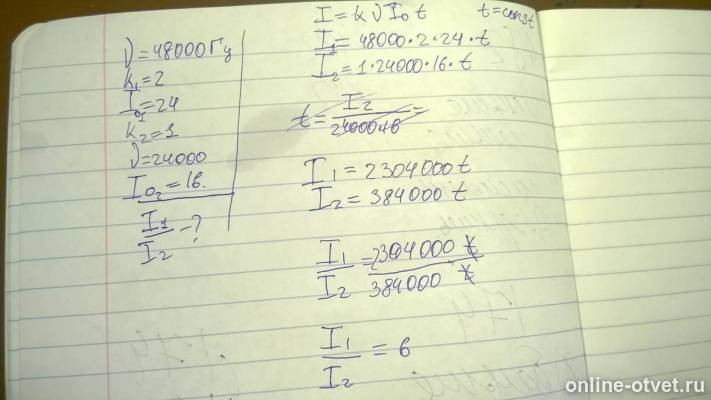 ν=48000Гц
k₁=2
I₀₁=24
k₂=1
ν=24000
I₀₂=16.
I₁/I₂-?
I=kνI₀t t=const
I₁=48000·2·24·t
I₂=1·24000·16·t
t=I₂/24000·16=
I₁=2304000t
I₂=384000 t
I₁/I₂=2304000 t/384000 t
I₁/I₂=6
online-otvet.ru